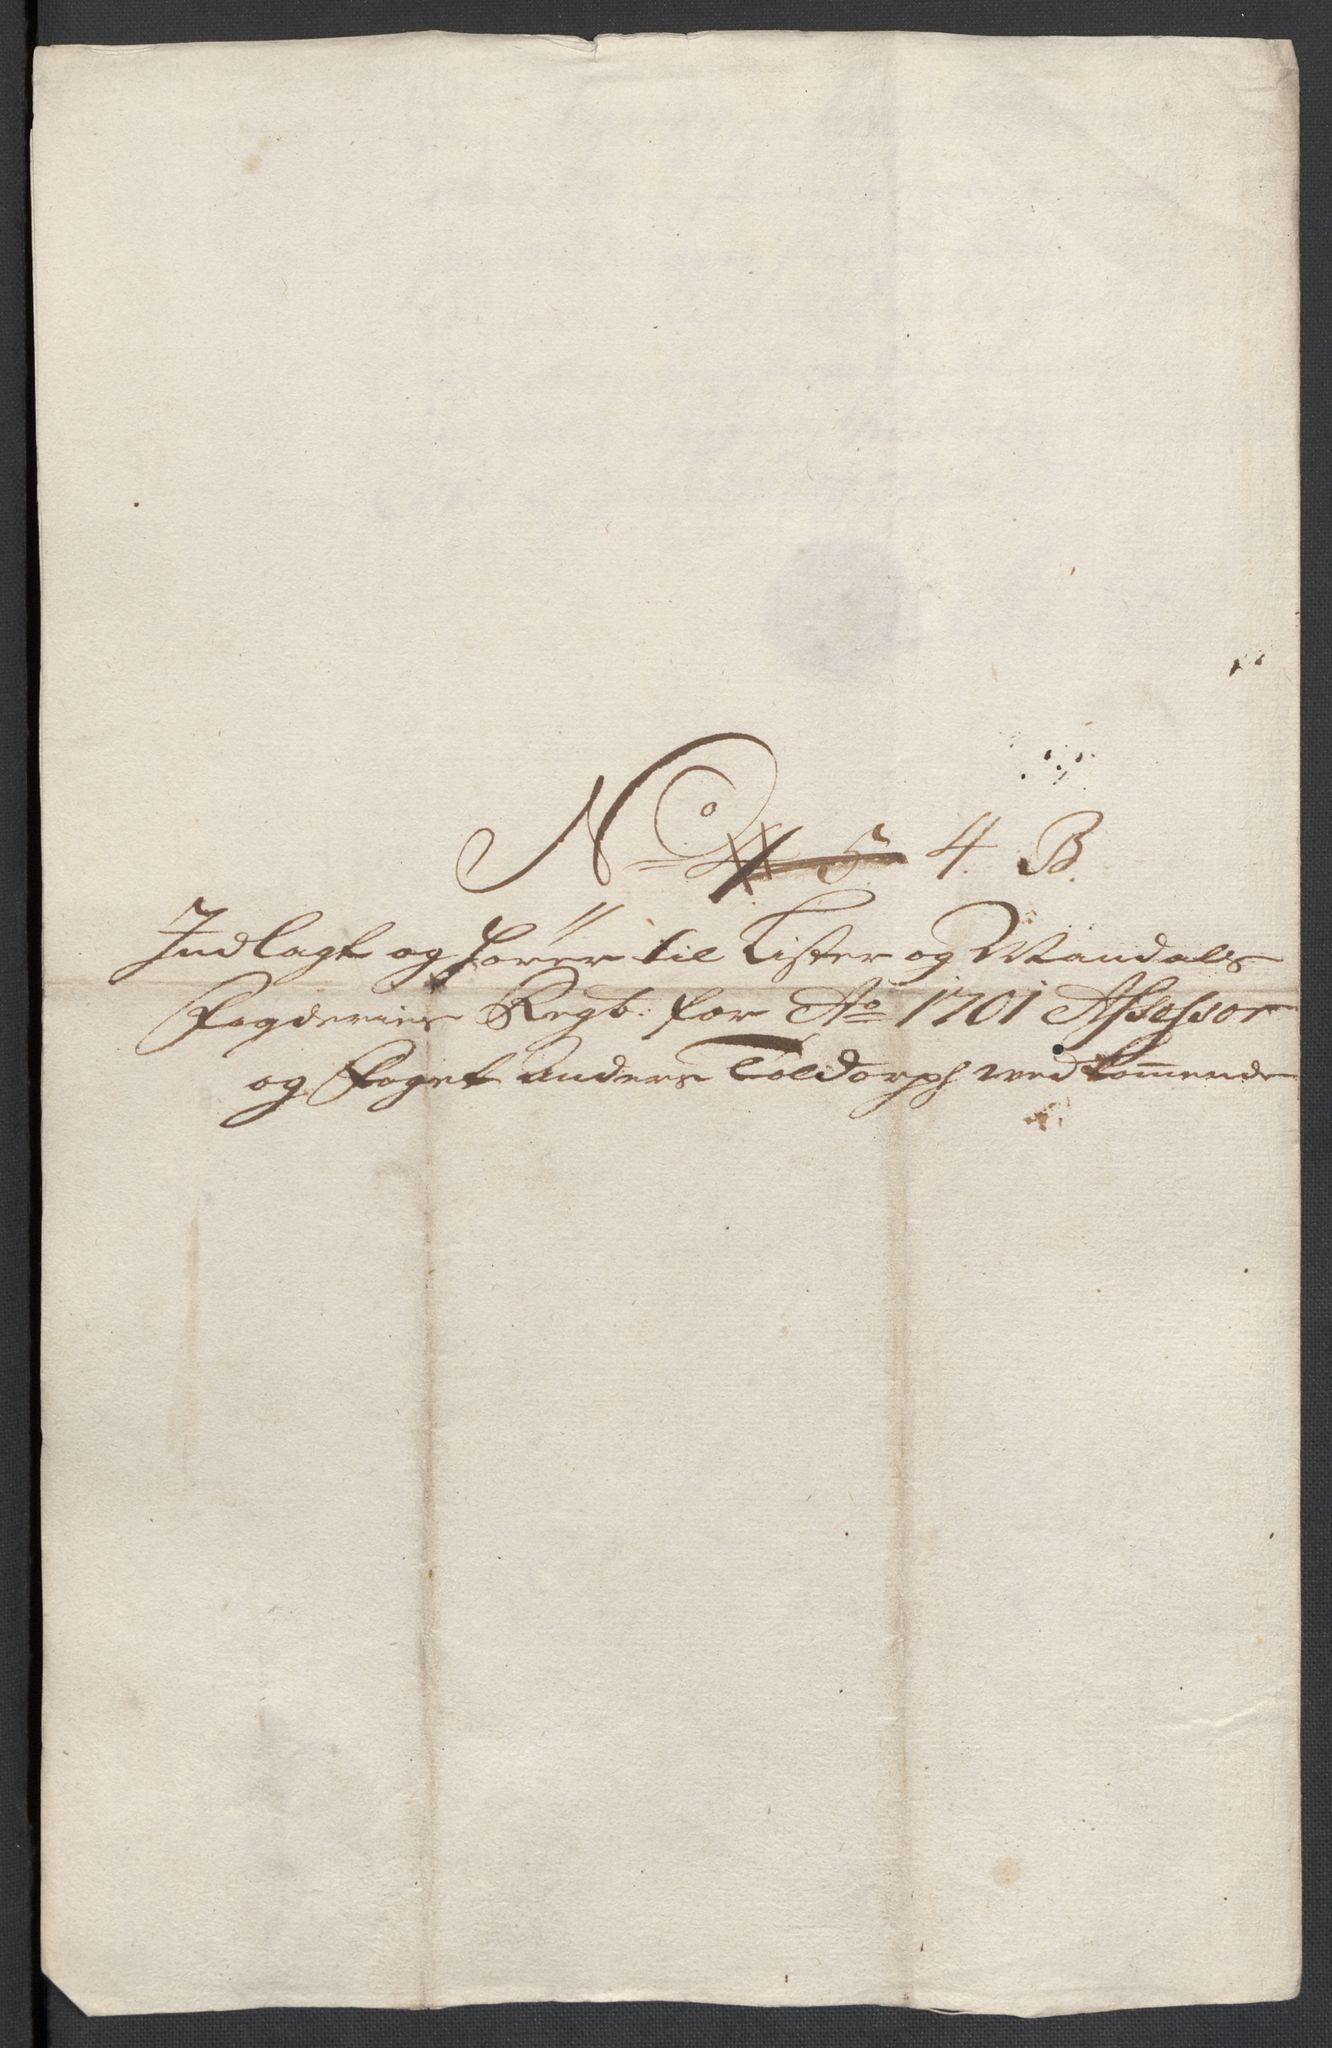 No 4 B.
Indlagt og hører til Lister og Mandals
Fogderies Regb: for Ao 1701 Assessor
og Foget Anders Toldorph vedkommende